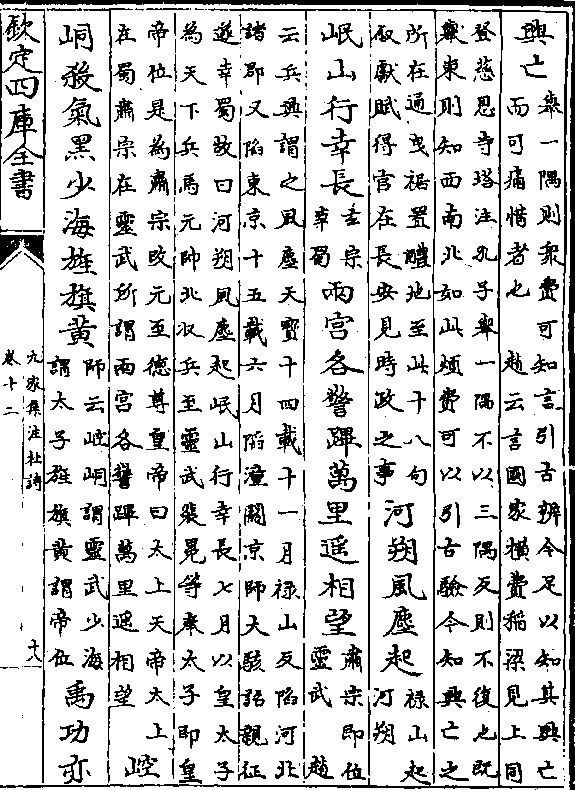 興亡
舉一隅則衆費可知言引古辨今足以知其興亡
而可痛惜者也 趙云言國家横費稻梁見上同
登慈恩寺塔注孔子舉一隅不以三隅反則不復也既
舉東則知西南北如此煩費可以引古驗今知興亡之
所在通曳裾置醴地至此十八句
取獻賦得官在長安見時政之事
河朔風塵起
禄山起
河朔
岷山行幸長
玄宗
幸蜀
兩宫各警蹕萬里遥相望
肅宗即位
靈武 趙
云兵興謂之風塵天寳十四載十一月禄山反陷河北
諸郡又陷東京十五載六月陷潼關京師大駭詔親征
遂幸蜀故曰河朔風塵起岷山行幸長七月以皇太子
為天下兵馬元帥北収兵至靈武裴冕等奉太子即皇
帝位是為肅宗改元至德尊皇帝曰太上天帝太上
在蜀肅宗在靈武所謂兩宫各警蹕萬里遥相望
崆
峒殺氣黑少海旌旗黄
師云崆峒謂靈武少海
謂太子旌旗黄謂帝位
禹功亦
欽定四庫全書
九家集注杜詩
卷十二
十八